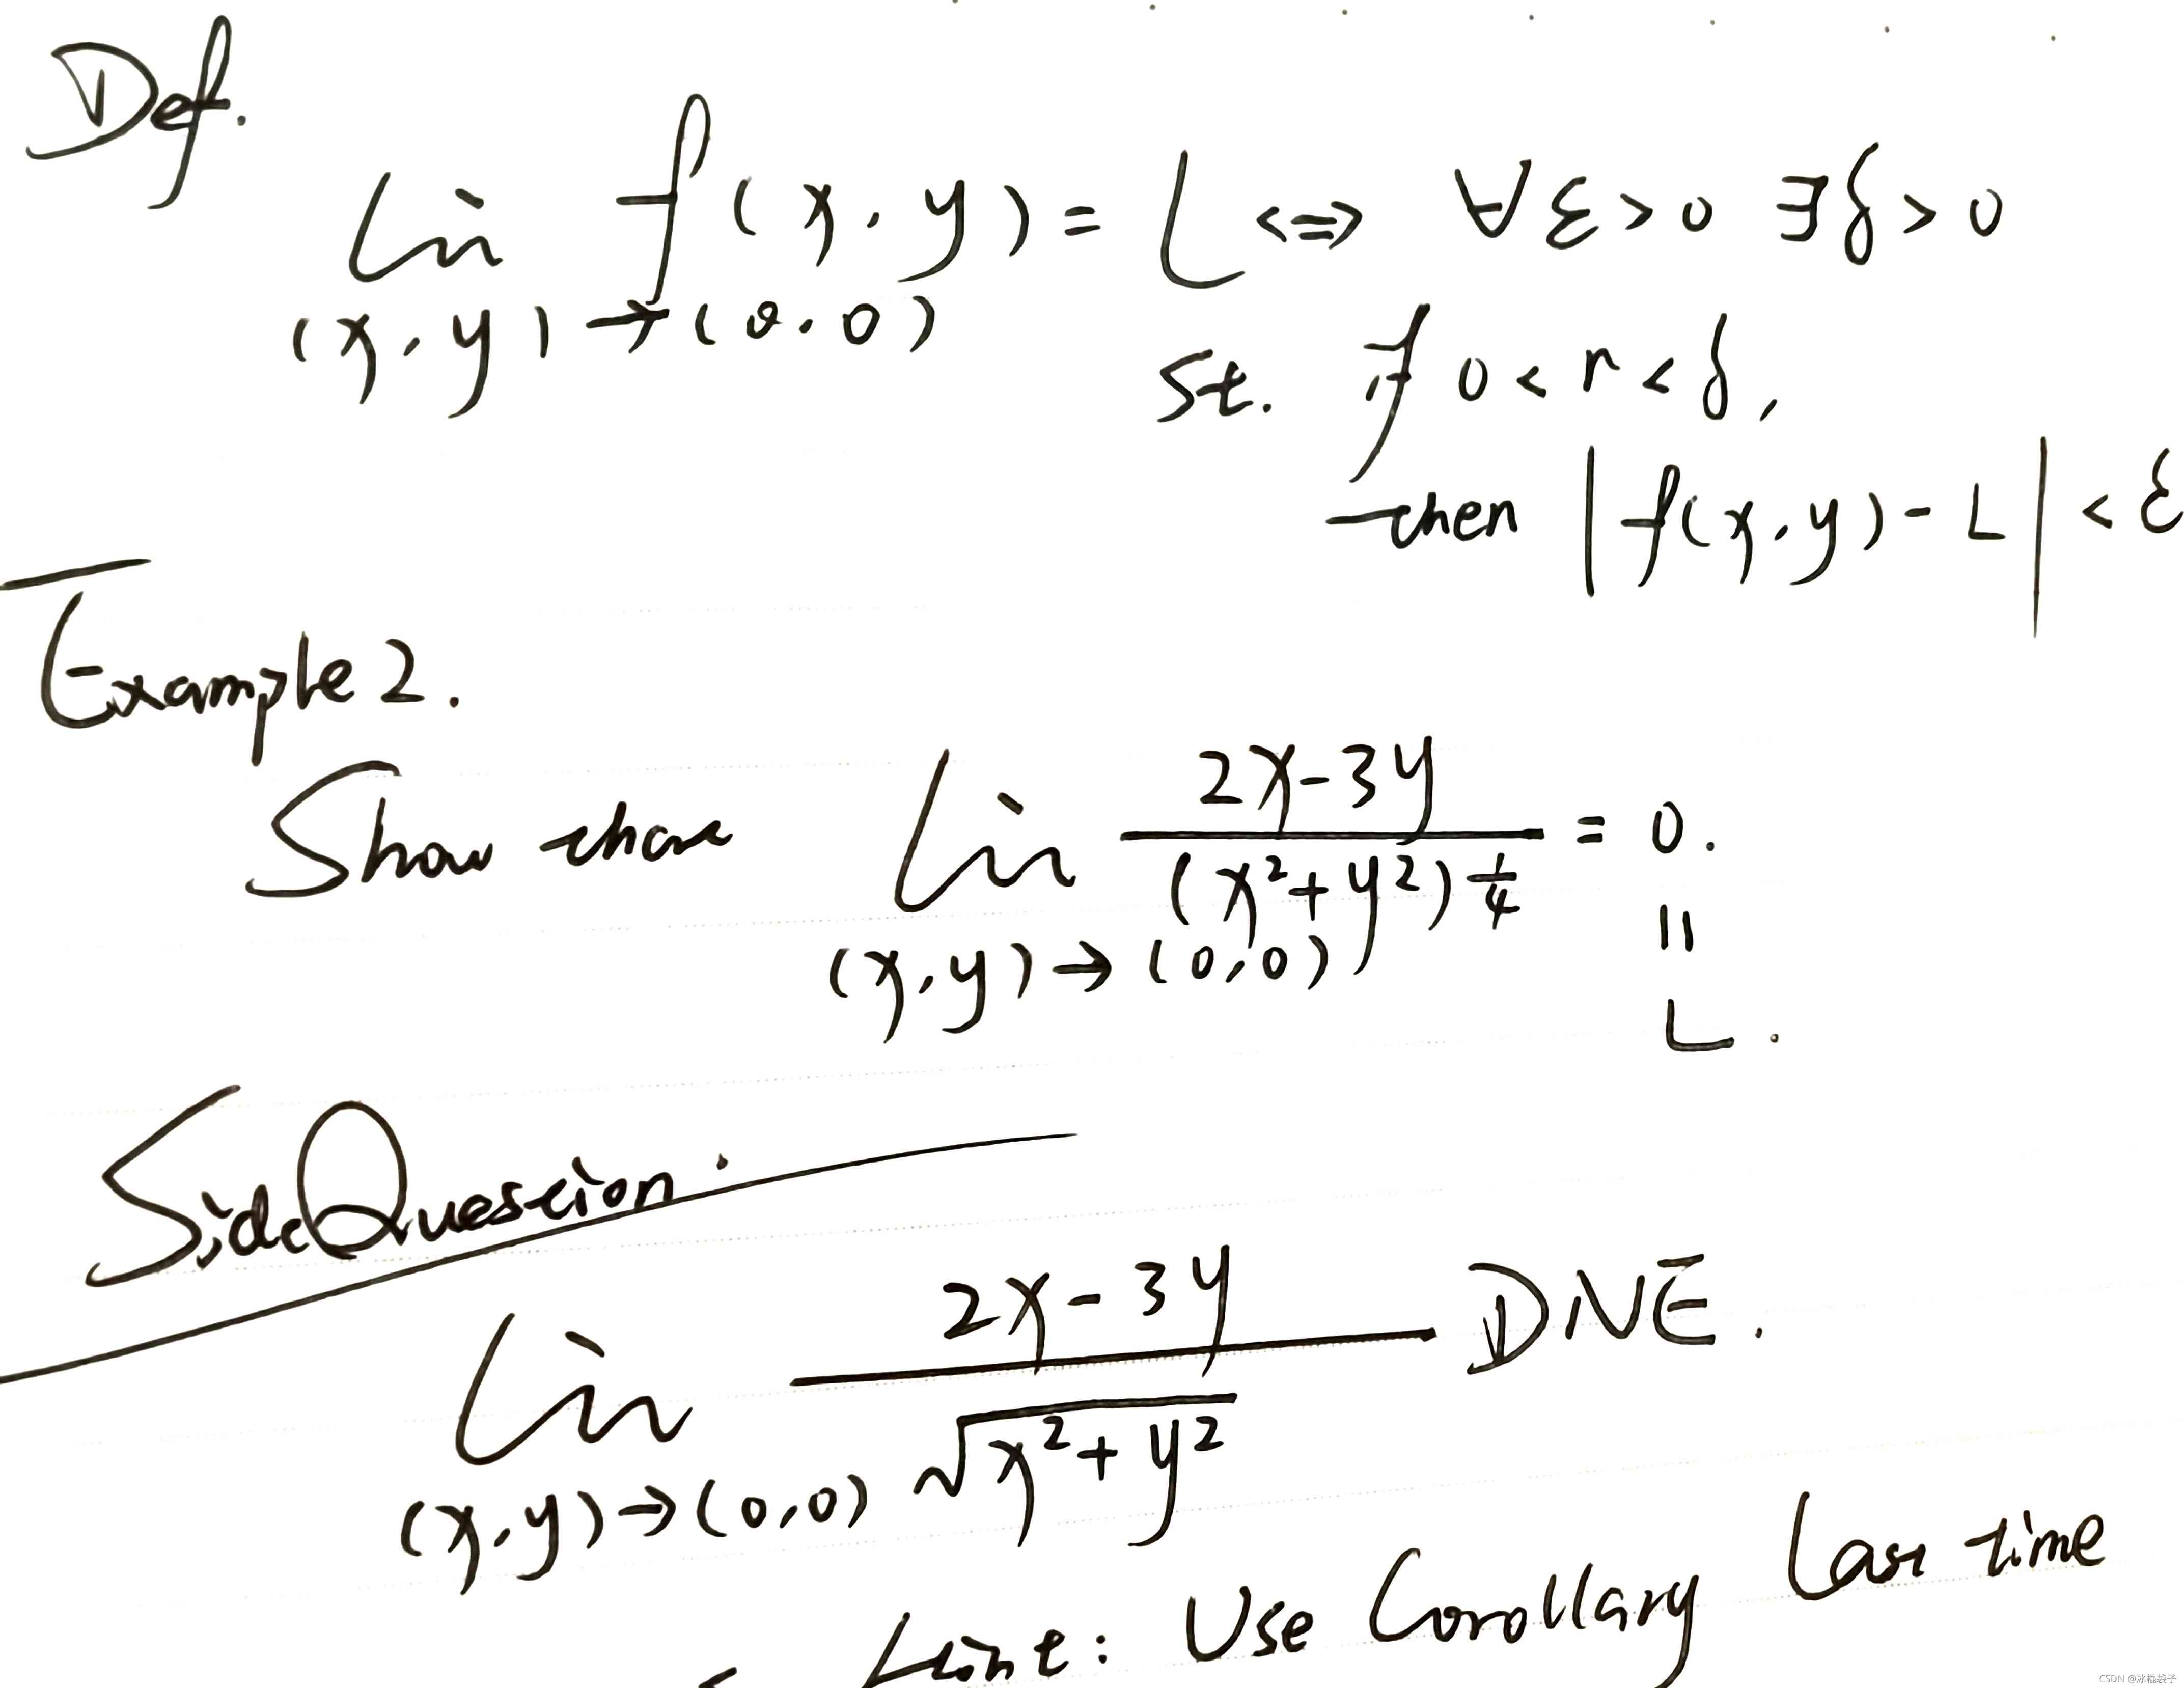 Def.
lim f(x,y) = L <=> ∀ε>0 ∃δ>0
(x,y)→(0,0)
st. if 0<r<δ,
then |f(x,y)-L| < ε
Example 2.
Show that lim (2x-3y)/(x²+y²)^(1/4) = 0.
(x,y)→(0,0)
||
L.
Side Question.
lim (2x-3y)/√(x²+y²) DNE.
(x,y)→(0,0)
Hint: Use Corollary last time
CSDN @冰棍袋子